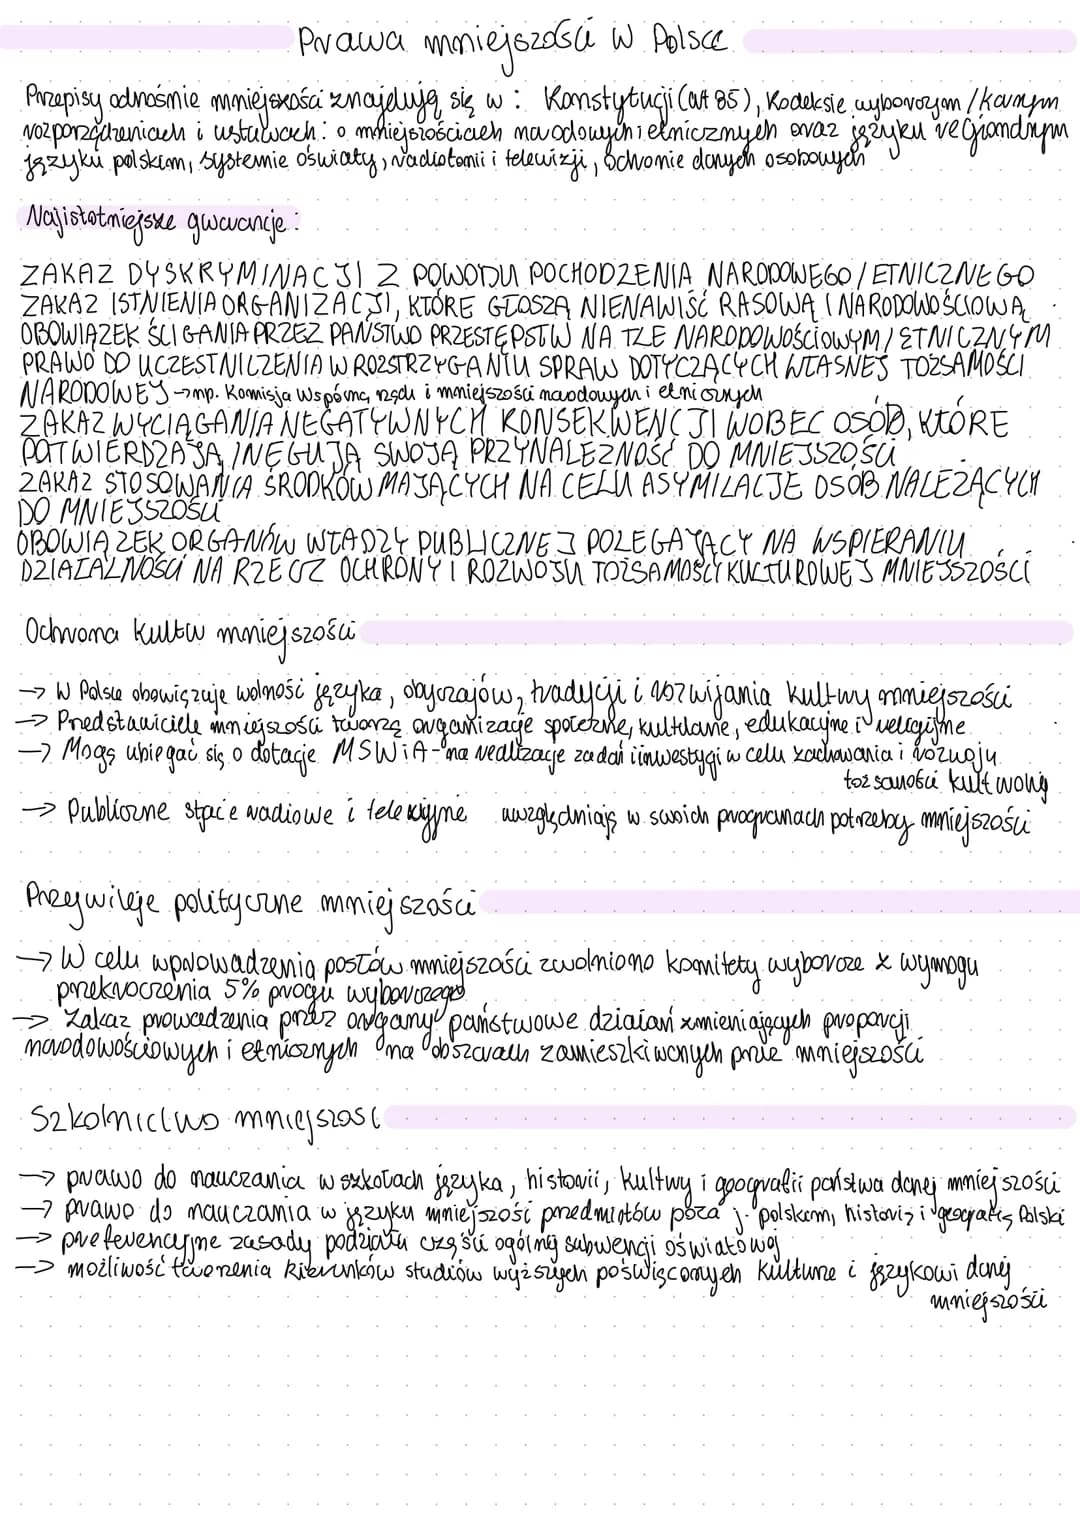 Prawa mniejszości w Polsce
Przepisy odnośnie mniejszości znajdują się w: Konstytucji (art 85), Kodeksie wyborczym / karnym
rozporządzeniach i ustawach: o mniejszościach narodowych i etnicznych oraz języku regionalnym
języku polskim, systemie oświaty, radiofonii i telewizji, ochronie danych osobowych
Najistotniejsze gwarancje:
ZAKAZ DYSKRYMINACJI Z POWODU POCHODZENIA NARODOWEGO / ETNICZNEGO
ZAKAZ ISTNIENIA ORGANIZACJI, KTÓRE GŁOSZĄ NIENAWIŚĆ RASOWĄ I NARODOWOŚCIOWĄ
OBOWIĄZEK ŚCIGANIA PRZEZ PAŃSTWO PRZESTĘPSTW NA TLE NARODOWOŚCIOWYM / ETNICZNYM
PRAWO DO UCZESTNICZENIA W ROZSTRZYGANIU SPRAW DOTYCZĄCYCH WŁASNEJ TOŻSAMOŚCI
NARODOWEJ → np. Komisja Wspólna rządu i mniejszości narodowych i etnicznych
ZAKAZ WYCIĄGANIA NEGATYWNYCH KONSEKWENCJI WOBEC OSÓB, KTÓRE
POTWIERDZAJĄ / NEGUJĄ SWOJĄ PRZYNALEŻNOŚĆ DO MNIEJSZOŚCI
ZAKAZ STOSOWANIA ŚRODKÓW MAJĄCYCH NA CELU ASYMILACJE OSÓB NALEŻĄCYCH
DO MNIEJSZOŚCI
OBOWIĄZEK ORGANÓW WŁADZY PUBLICZNEJ POLEGAJĄCY NA WSPIERANIU
DZIAŁALNOŚCI NA RZECZ OCHRONY I ROZWOJU TOŻSAMOŚCI KULTUROWEJ MNIEJSZOŚCI
Ochrona kultur mniejszości
→ W Polsce obowiązuje wolność języka, obyczajów, tradycji i rozwijania kultury mniejszości
→ Predstawiciele mniejszości tworzą organizacje społeczne, kultulane, edukacyjne i religijne
→ Mogą ubiegać się o dotacje MSWiA - na realizacje zadań i inwestycji w celu zachowania i rozwoju
tożsamości kulturowej
→ Publiczne stacje radiowe i telewizyjne uwzględniają w swoich programach potrzeby mniejszości
Przywileje polityczne mniejszości
→ W celu wprowadzenia posłów mniejszości zwolniono komitety wyborcze z wymogu
przekroczenia 5% progu wyborczego
→ Zakaz prowadzenia przez organy państwowe działań zmieniających proporcji
narodowościowych i etnicznych na obszarach zamieszkiwanych przez mniejszości
Szkolnictwo mniejszości
→ prawo do nauczania w szkołach języka, historii, kultury i geografii państwa danej mniejszości
→ prawo do nauczania w języku mniejszości przedmiotów poza j. polskim, historią i geografią Polski
→ preferencyjne zasady podziału części ogólnej subwencji oświatowej
→ możliwość tworzenia kierunków studiów wyższych poświęconych kulturze i językowi danej
mniejszości